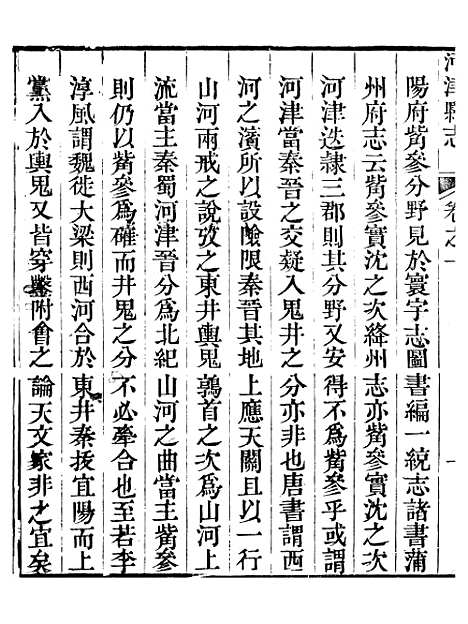 河津縣志 卷之一
陽府觜參分野見於寰宇志圖書編一統志諸書蒲
州府志云觜參實沈之次絳州志亦觜參實沈之次
河津迭隸三郡則其分野又安得不爲觜參乎或謂
河津當秦晉之交疑入鬼井之分亦非也唐書謂西
河之濱所以設險限秦晉其地上應天關且以一行
山河兩戒之說攷之東井輿鬼鶉首之次爲山河上
流當主秦蜀河津晉分爲北紀山河之曲當主觜參
則仍以觜參爲確而井鬼之分不必牽合也至若李
淳風謂魏徙大梁則西河合於東井秦拔宜陽而上
黨入於輿鬼又皆穿鑿附會之論天文家非之宜矣